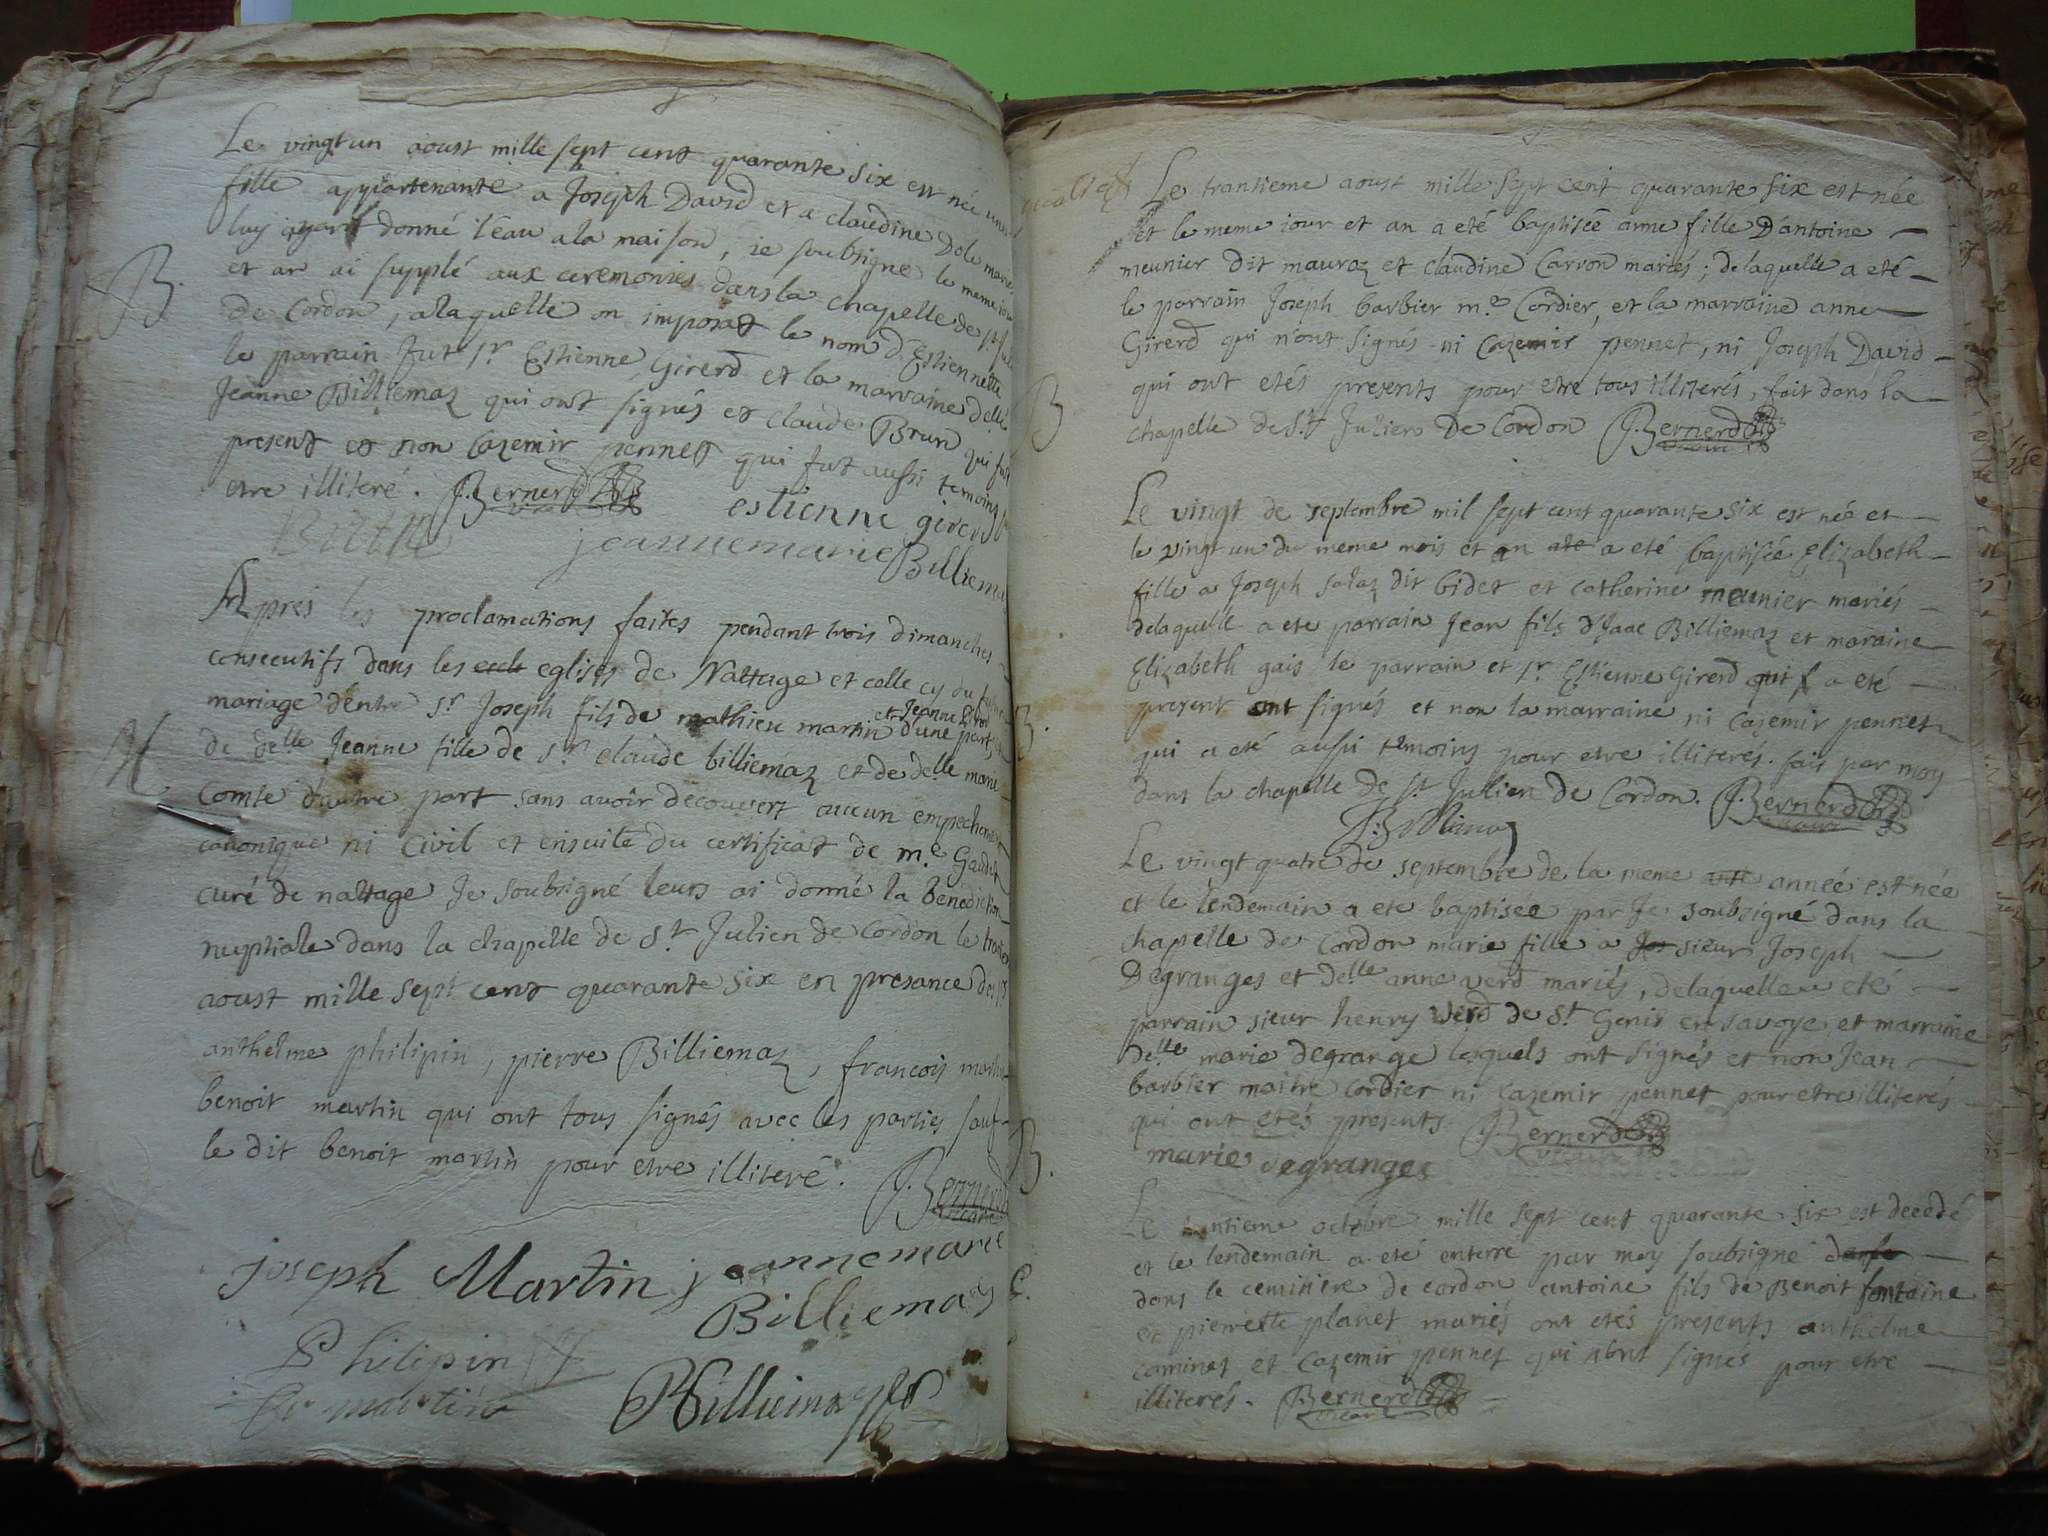 Le vingt un aoust mille sept cent quarante six est née une
fille appartenante a Joseph David et a claudine Dole mariés
luy ayant donné l'eau a la maison, ie soubsigné le meme iour
et an ai supplé aux ceremonies dans la chapelle de st Julien
B.
de Cordon, a laquelle on imposat le nom d'Estiennette
le parrain fut sr Estienne Girerd et la marraine delle
Jeanne Billiemaz qui ont signés et claude Brun qui fut
present et non Cazemir pennet qui fut aussi temoins pour
etre illiteré. J. Bernerd vicaire estienne girerd
jeanne marie Billiemaz
Apres les proclamations faites pendant trois dimanches
consecutifs dans les eglises de Nattage et celle cy du futur
et Jeanne
mariage d'entre sr Joseph fils de mathieu martin d'une part,
M.
de delle Jeanne fille de sr claude billiemaz et de delle marie
Comte d'autre part sans avoir decouvert aucun empechement
canonique ni Civil et ensuite du certificat de m.e Gaudet
curé de nattage Je soubsigné leurs ai donné la benediction
nuptiale dans la chapelle de St Julien de Cordon le
aoust mille sept cent quarante six en presance des
anthelme philipin, pierre Billiemaz, francois martin
benoit martin qui ont tous signés avec les parties sauf
le dit benoit martin pour etre illiteré.
J. Bernerd vicaire
joseph Martin jeanne marie
Billiemaz
Philipin
martin
P Billiemaz
Le trantieme aoust mille sept cent quarante six est née
et le meme iour et an a eté baptisée anne fille D'antoine
meunier dit mauraz et claudine Carron mariés; de laquelle a eté
le parrain Joseph barbier m.e Cordier, et la marraine anne
Girerd qui n'ont signés ni Cazemir pennet, ni Joseph David
B
qui ont etés presents pour etre tous illiterés, fait dans la
chapelle de St Julien De Cordon J. Bernerd vicaire
Le vingt de septembre mil sept cent quarante six est née et
le vingt un du meme mois et an a eté baptisée Elizabeth
fille a Joseph salaz dit bidet et catherine meunier mariés
delaquelle a ete parrain Jean fils d'Isaac Billiemaz et maraine
Elizabeth gais le parrain et sr Estienne Girerd qui a eté
B.
present ont signés et non la marraine ni Cazemir pennet
qui a eté aussi temoins pour etre illiterés. fait par moy
dans la chapelle de St Julien de Cordon. J. Bernerd vicaire
J. Billiemaz
Le vingt quatre de septembre de la meme année est née
et le lendemain a ete baptisée par Je soubsigné dans la
chapelle de Cordon marie fille a sieur Joseph
Degranges et delle anne verd mariés, delaquelle a eté
parrain sieur henry verd de St Genis en savoye et marraine
delle marie degrange lesquels ont signés et non Jean
barbier maitre cordier ni Cazemir pennet pour etre illiterés
B.
qui ont etés presents J. Bernerd vicaire
marie degranges
Le trantieme octobre mille sept cent quarante six est decedé
et le lendemain a eté enterré par moy soubsigné
S.
dans le cemitiere de cordon antoine fils de Benoit fontaine
et pierrette planet mariés ont etés presents anthelme
caminet et Cazemir pennet qui n'ont signés pour etre
illiterés. J. Bernerd vicaire